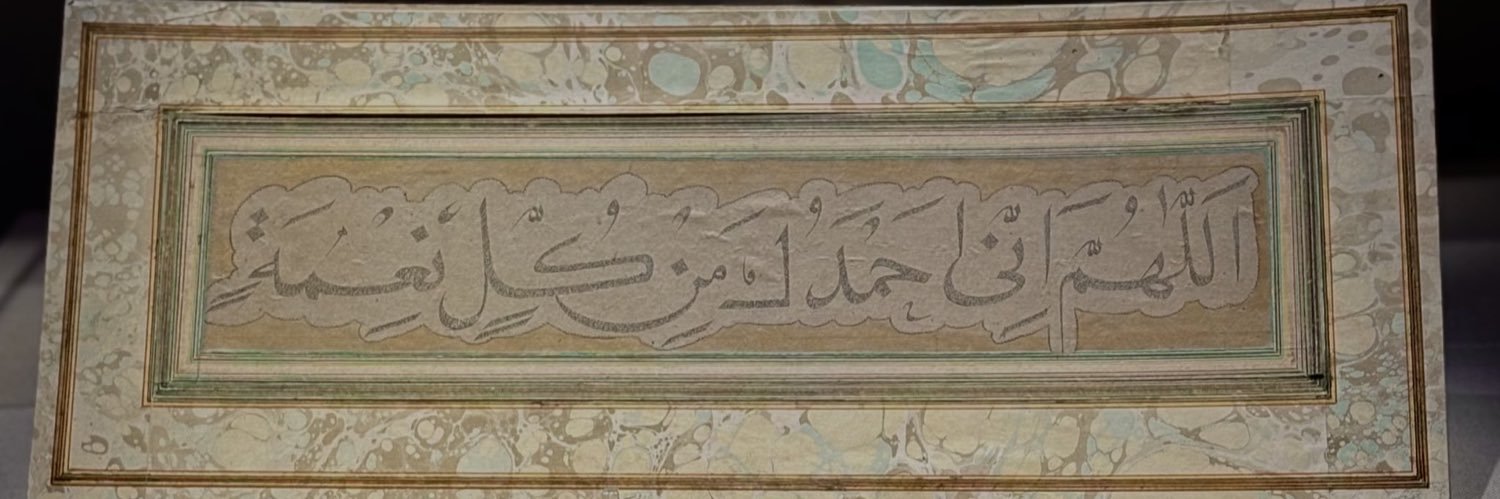 اَللّٰهُمَّ اِنِّى اَحْمَدُكَ مِنْ كُلِّ نِعْمَةٍ